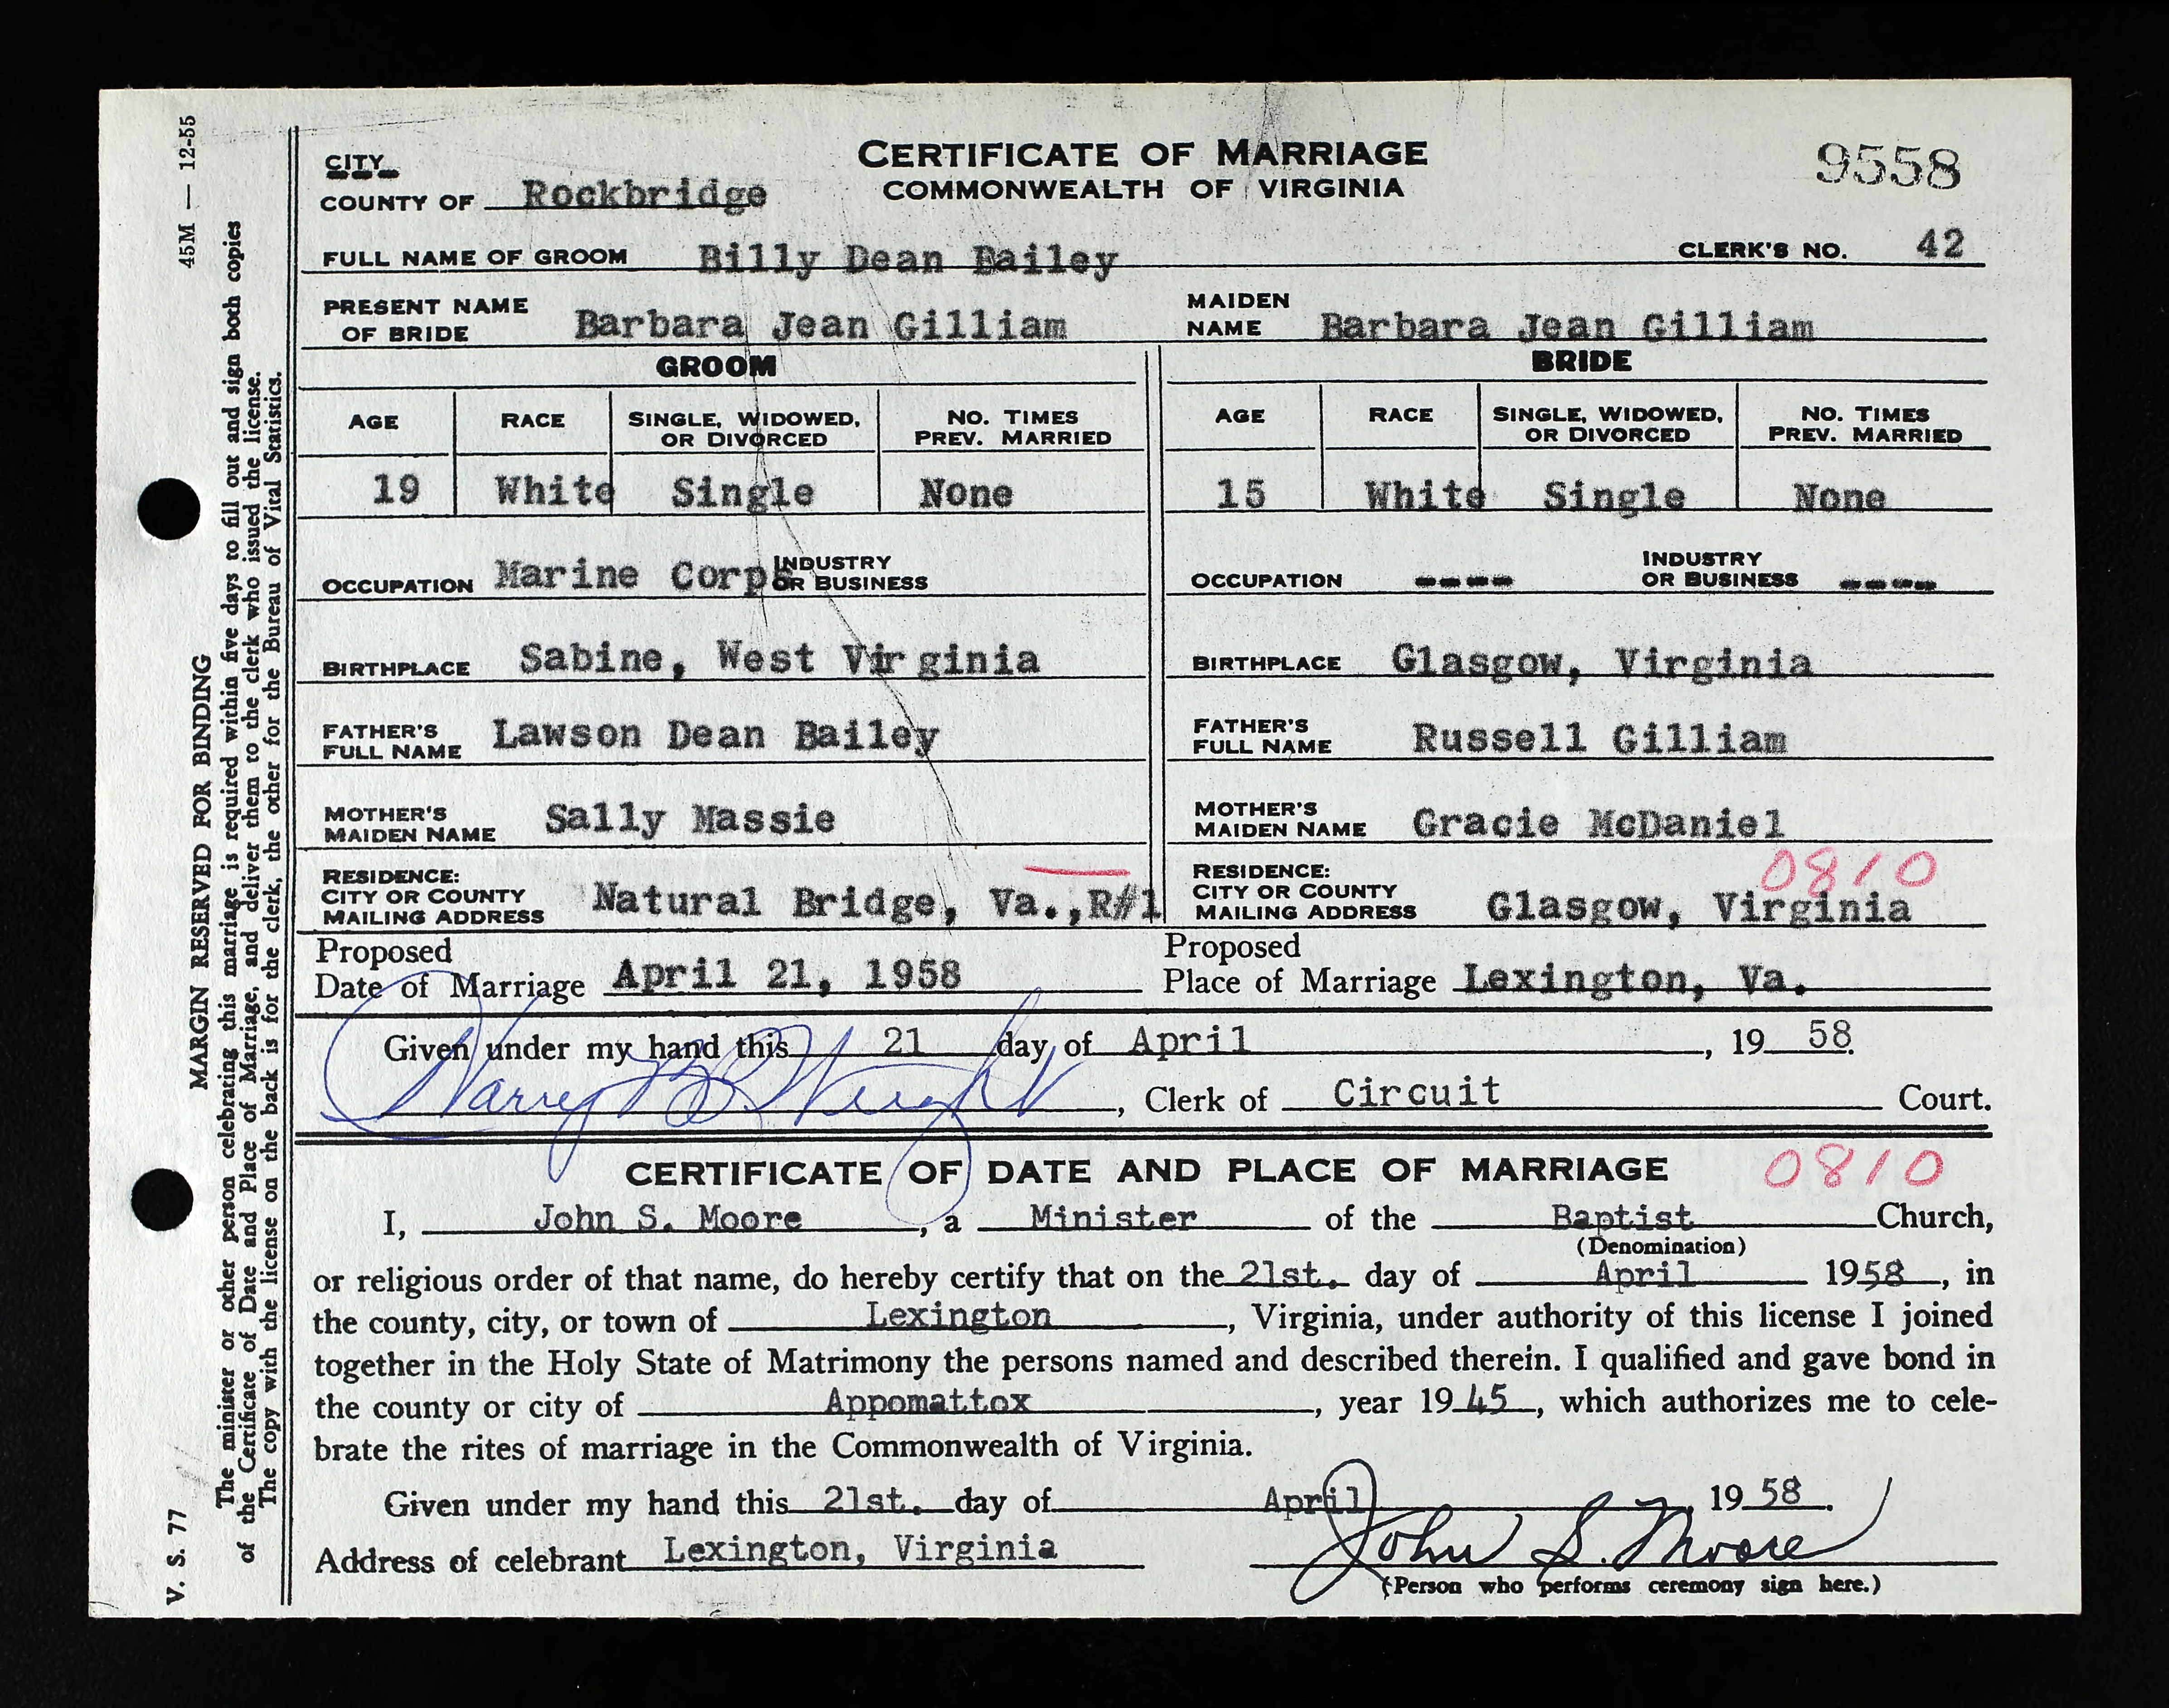 45M — 12-55
MARGIN RESERVED FOR BINDING
The minister or other person celebrating this marriage is required within five days to fill out and sign both copies
of the Certificate of Date and Place of Marriage, and deliver them to the clerk who issued the license.
The copy with the license on the back is for the clerk, the other for the Bureau of Vital Statistics.
V. S. 77
CERTIFICATE OF MARRIAGE
COMMONWEALTH OF VIRGINIA
9558
CITY
COUNTY OF Rockbridge
FULL NAME OF GROOM Billy Dean Bailey CLERK'S NO. 42
PRESENT NAME OF BRIDE Barbara Jean Gilliam MAIDEN NAME Barbara Jean Gilliam
GROOM BRIDE
AGE RACE SINGLE, WIDOWED, OR DIVORCED NO. TIMES PREV. MARRIED AGE RACE SINGLE, WIDOWED, OR DIVORCED NO. TIMES PREV. MARRIED
19 White Single None 15 White Single None
OCCUPATION Marine Corps INDUSTRY OR BUSINESS OCCUPATION ---- INDUSTRY OR BUSINESS ----
BIRTHPLACE Sabine, West Virginia BIRTHPLACE Glasgow, Virginia
FATHER'S FULL NAME Lawson Dean Bailey FATHER'S FULL NAME Russell Gilliam
MOTHER'S MAIDEN NAME Sally Massie MOTHER'S MAIDEN NAME Gracie McDaniel
0810
RESIDENCE: CITY OR COUNTY MAILING ADDRESS Natural Bridge, Va.,R#1 RESIDENCE: CITY OR COUNTY MAILING ADDRESS Glasgow, Virginia
Proposed Date of Marriage April 21, 1958 Proposed Place of Marriage Lexington, Va.
Given under my hand this 21 day of April, 19 58
Harry B Wright, Clerk of Circuit Court.
CERTIFICATE OF DATE AND PLACE OF MARRIAGE 0810
I, John S. Moore, a Minister of the Baptist Church,
(Denomination)
or religious order of that name, do hereby certify that on the 21st. day of April 1958, in
the county, city, or town of Lexington, Virginia, under authority of this license I joined
together in the Holy State of Matrimony the persons named and described therein. I qualified and gave bond in
the county or city of Appomattox, year 1945, which authorizes me to cele-
brate the rites of marriage in the Commonwealth of Virginia.
Given under my hand this 21st. day of April, 19 58.
Address of celebrant Lexington, Virginia John S. Moore
(Person who performs ceremony sign here.)